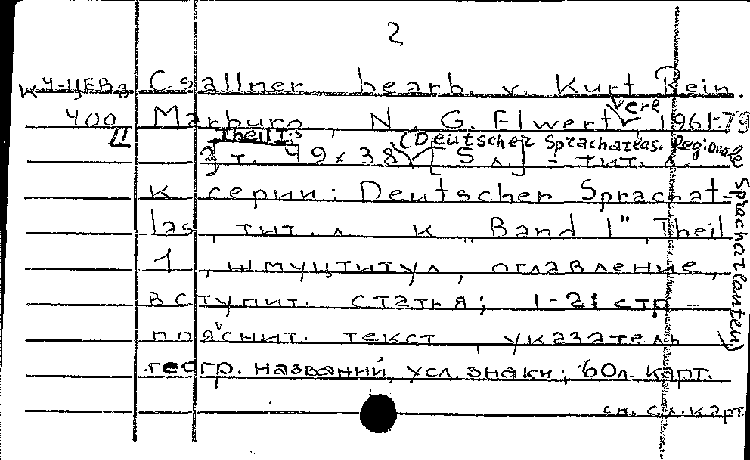 2
К Ч-ЦЕВ3 Csallner bearb. v. Kurt Rein.
400 Marburg, N. G. Elwert, 1961-79
Theil I:
(Deutscher Sprachatlas. Regionale Sprachatlanten)
2 т. 49x38 [5 л.] - тит. л.
к серии: Deutscher Sprachat-
las, тит. л. к "Band 1", Theil
1, шмуцтитул, оглавление,
вступит. статья; 1-21 стр -
пояснит. текст, указатель
геогр. названий, усл. знаки; 60л. карт.
см. сл. карт.